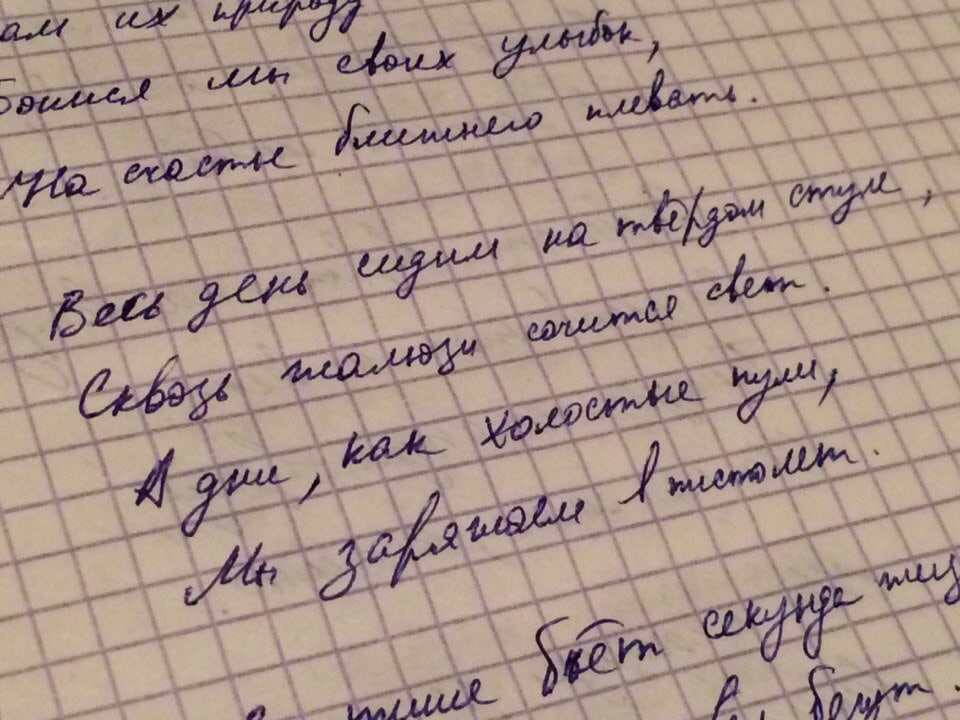 их природу
Боимся мы своих улыбок,
На счастье ближнего плевать.
Весь день сидим на твёрдом стуле,
Сквозь жалюзи сочится свет.
А дни, как холостые пули,
Мы заряжаем в пистолет.
бьёт секунда